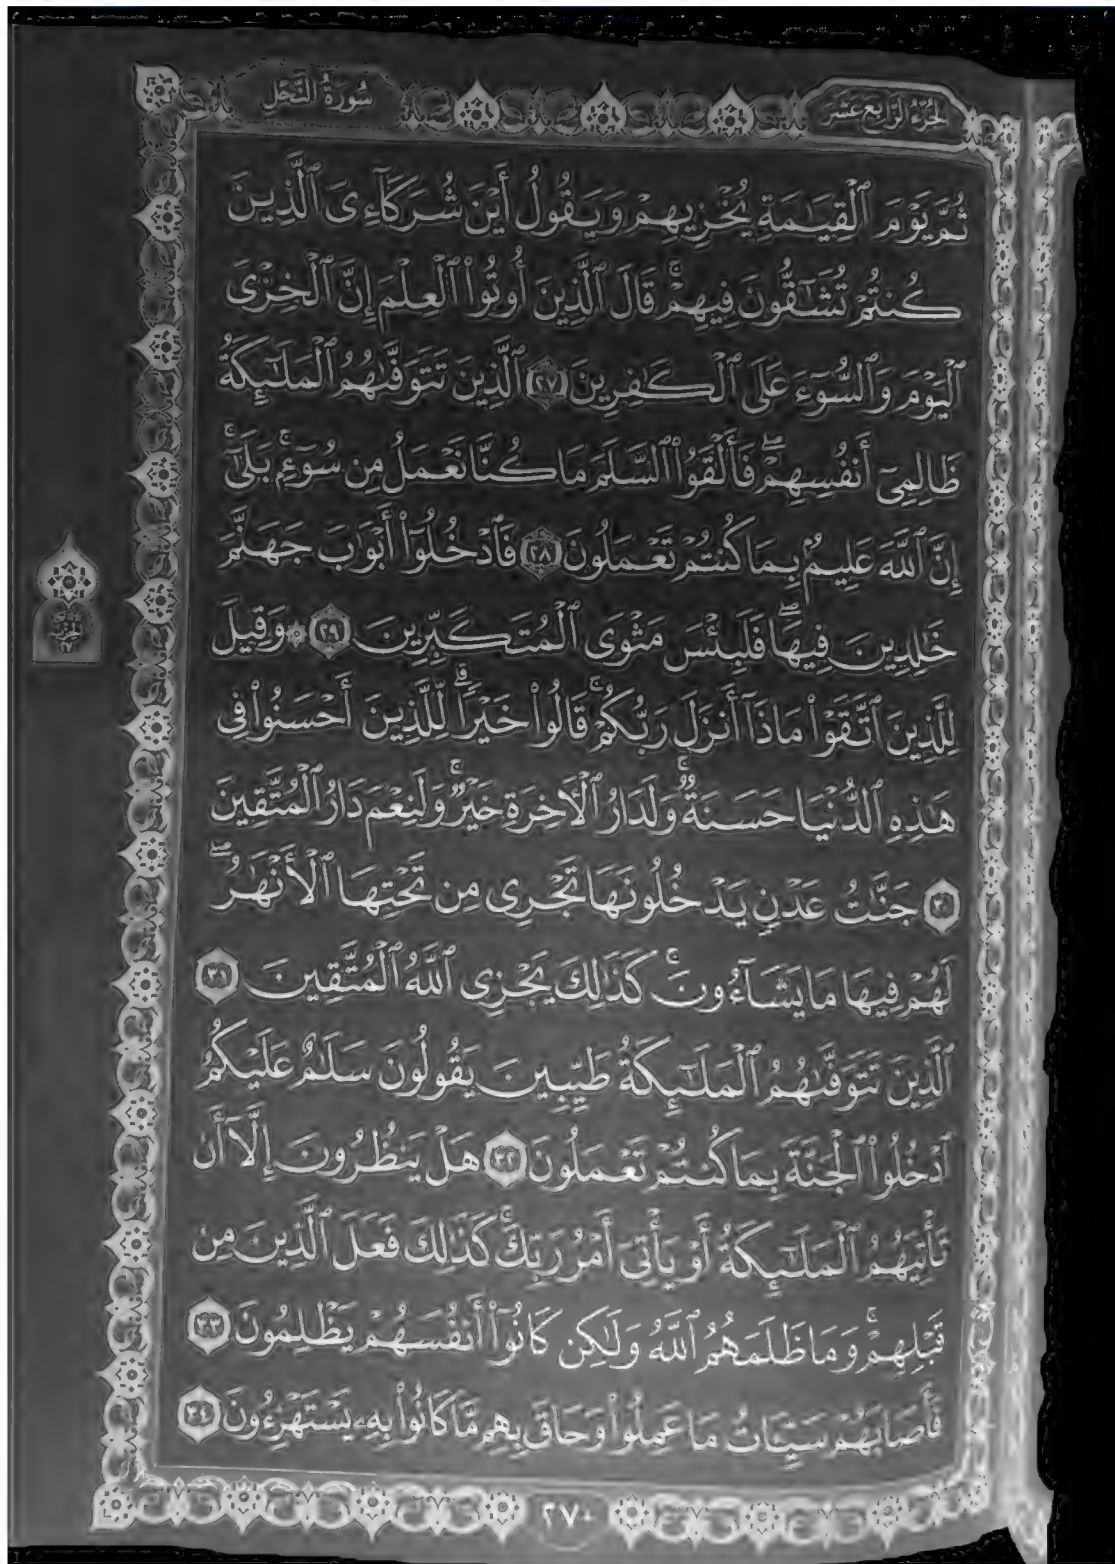 الجزء الرابع عشر
سورة النحل
ثُمَّ يَوْمَ ٱلْقِيَٰمَةِ يُخْزِيهِمْ وَيَقُولُ أَيْنَ شُرَكَآءِىَ ٱلَّذِينَ
كُنتُمْ تُشَٰٓقُّونَ فِيهِمْ ۚ قَالَ ٱلَّذِينَ أُوتُوا۟ ٱلْعِلْمَ إِنَّ ٱلْخِزْىَ
ٱلْيَوْمَ وَٱلسُّوٓءَ عَلَى ٱلْكَٰفِرِينَ ٢٧ ٱلَّذِينَ تَتَوَفَّىٰهُمُ ٱلْمَلَٰٓئِكَةُ
ظَالِمِىٓ أَنفُسِهِمْ ۖ فَأَلْقَوُا۟ ٱلسَّلَمَ مَا كُنَّا نَعْمَلُ مِن سُوٓءٍۭ ۚ بَلَىٰٓ ۚ
إِنَّ ٱللَّهَ عَلِيمٌۢ بِمَا كُنتُمْ تَعْمَلُونَ ٢٨ فَٱدْخُلُوٓا۟ أَبْوَٰبَ جَهَنَّمَ
خَٰلِدِينَ فِيهَا ۖ فَلَبِئْسَ مَثْوَى ٱلْمُتَكَبِّرِينَ ٢٩ ۞ وَقِيلَ
لِلَّذِينَ ٱتَّقَوْا۟ مَاذَآ أَنزَلَ رَبُّكُمْ ۚ قَالُوا۟ خَيْرًا ۗ لِّلَّذِينَ أَحْسَنُوا۟ فِى
هَٰذِهِ ٱلدُّنْيَا حَسَنَةٌ ۚ وَلَدَارُ ٱلْءَاخِرَةِ خَيْرٌ ۚ وَلَنِعْمَ دَارُ ٱلْمُتَّقِينَ
٣٠ جَنَّٰتُ عَدْنٍ يَدْخُلُونَهَا تَجْرِى مِن تَحْتِهَا ٱلْأَنْهَٰرُ ۖ
لَهُمْ فِيهَا مَا يَشَآءُونَ ۚ كَذَٰلِكَ يَجْزِى ٱللَّهُ ٱلْمُتَّقِينَ ٣١
ٱلَّذِينَ تَتَوَفَّىٰهُمُ ٱلْمَلَٰٓئِكَةُ طَيِّبِينَ يَقُولُونَ سَلَٰمٌ عَلَيْكُمُ
ٱدْخُلُوا۟ ٱلْجَنَّةَ بِمَا كُنتُمْ تَعْمَلُونَ ٣٢ هَلْ يَنظُرُونَ إِلَّآ أَن
تَأْتِيَهُمُ ٱلْمَلَٰٓئِكَةُ أَوْ يَأْتِىَ أَمْرُ رَبِّكَ ۚ كَذَٰلِكَ فَعَلَ ٱلَّذِينَ مِن
قَبْلِهِمْ ۚ وَمَا ظَلَمَهُمُ ٱللَّهُ وَلَٰكِن كَانُوٓا۟ أَنفُسَهُمْ يَظْلِمُونَ ٣٣
فَأَصَابَهُمْ سَيِّـَٔاتُ مَا عَمِلُوا۟ وَحَاقَ بِهِم مَّا كَانُوا۟ بِهِۦ يَسْتَهْزِءُونَ ٣٤
٢٧٠